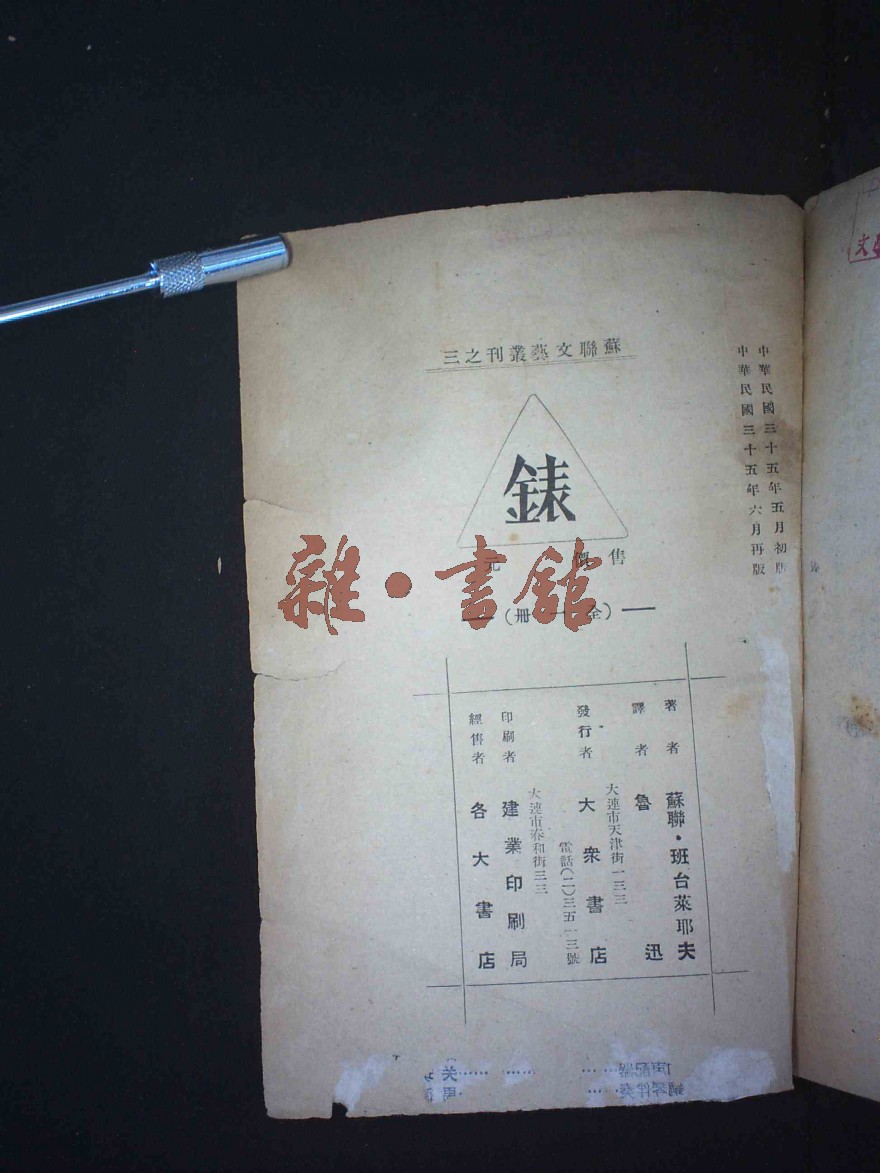 蘇聯文藝叢刊之三
中華民國三十五年五月初版
中華民國三十五年六月再版
錶
售價 元
（全一冊）
著者 蘇聯・班台萊耶夫
譯者 魯迅
發行者 大衆書店
大連市天津街一三三
電話（二）三五一三號
印刷者 建業印刷局
大連市泰和街三三
經售者 各大書店
雜・書館